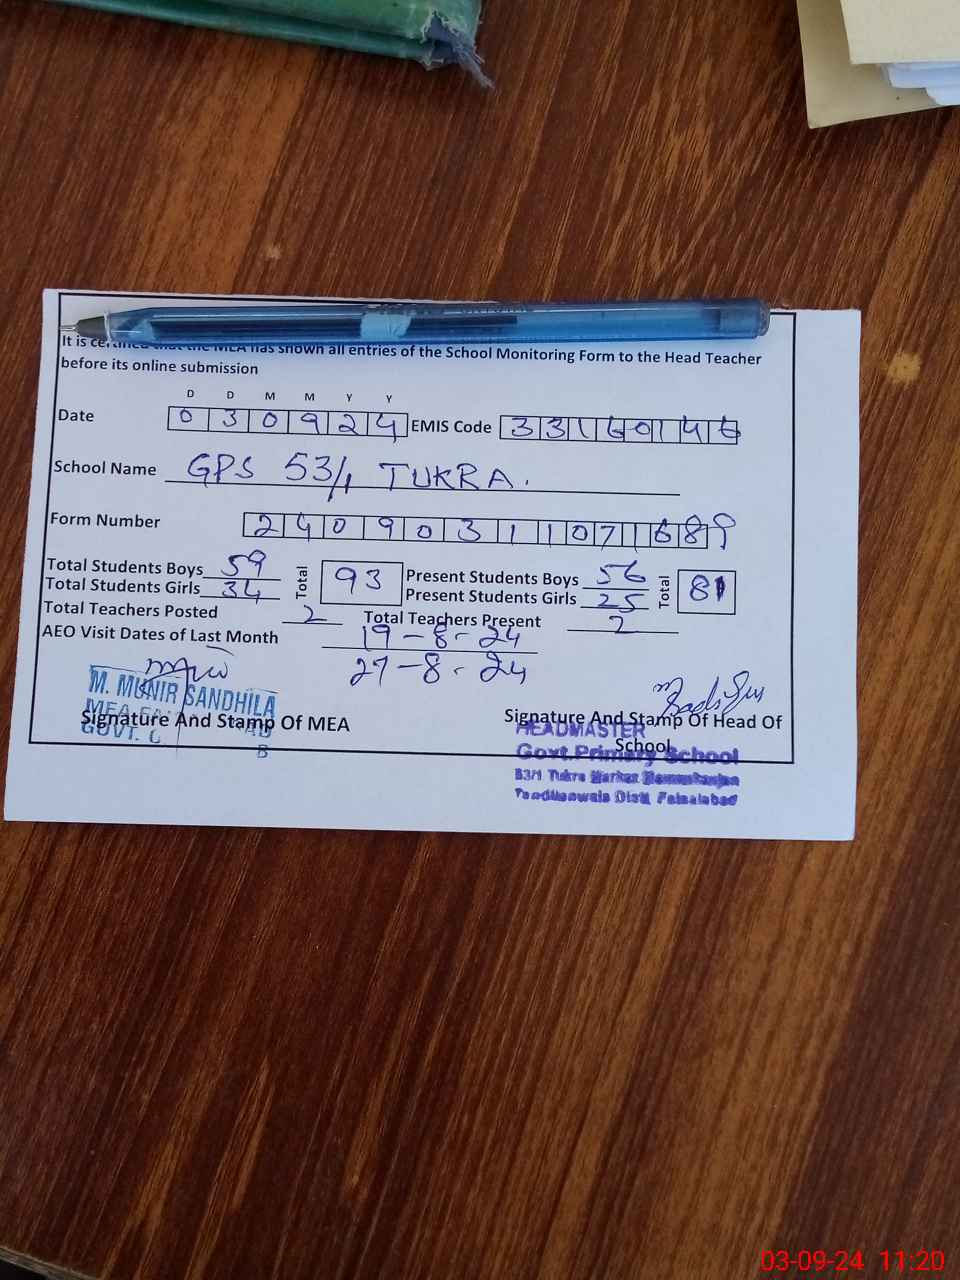 It is certified that the MEA has shown all entries of the School Monitoring Form to the Head Teacher
before its online submission
D D M M Y Y
Date 030924 EMIS Code 33160146
School Name GPS 53/1 TUKRA.
Form Number 24090311071689
Total Students Boys 59 Total 93 Present Students Boys 56 Total 81
Total Students Girls 34 Present Students Girls 25
Total Teachers Posted 2 Total Teachers Present 2
AEO Visit Dates of Last Month 19-8-24
27-8-24
M. MUNIR SANDHILA
Signature And Stamp Of MEA
GOVT.
Signature And Stamp Of Head Of
School
HEADMASTER
Govt. Primary School
53/1 Tukra Markaz
Tandlianwala Distt. Faisalabad
03-09-24 11:20